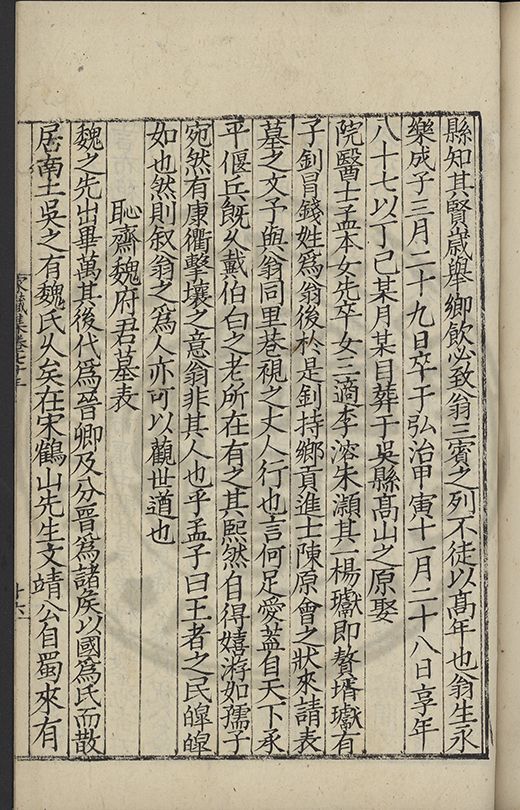 縣知其賢歲舉鄉飲必致翁三賔之列不徒以髙年也翁生永
樂戍子三月二十九日卒于弘治甲寅十一月二十八日享年
八十七以丁巳某月某日葬于吳縣髙山之原娶
院醫士孟本女先卒女三適李溶朱灝其一楊瓛即贅壻瓛有
子釗冒錢姓爲翁後於是釗持鄉貢進士陳原會之狀來請表
墓之文予與翁同里巷視之丈人行也言何足愛蓋自天下承
平偃兵旣久戴伯白之老所在有之其熙然自得嬉游如孺子
宛然有康衢擊壤之意翁非其人也乎孟子曰王者之民皥皥
如也然則叙翁之爲人亦可以觀世道也
恥齋魏府君墓表
魏之先出畢萬其後代爲晉卿及分晉爲諸侯以國爲氏而散
居南土吳之有魏氏久矣在宋鶴山先生文靖公自蜀來有